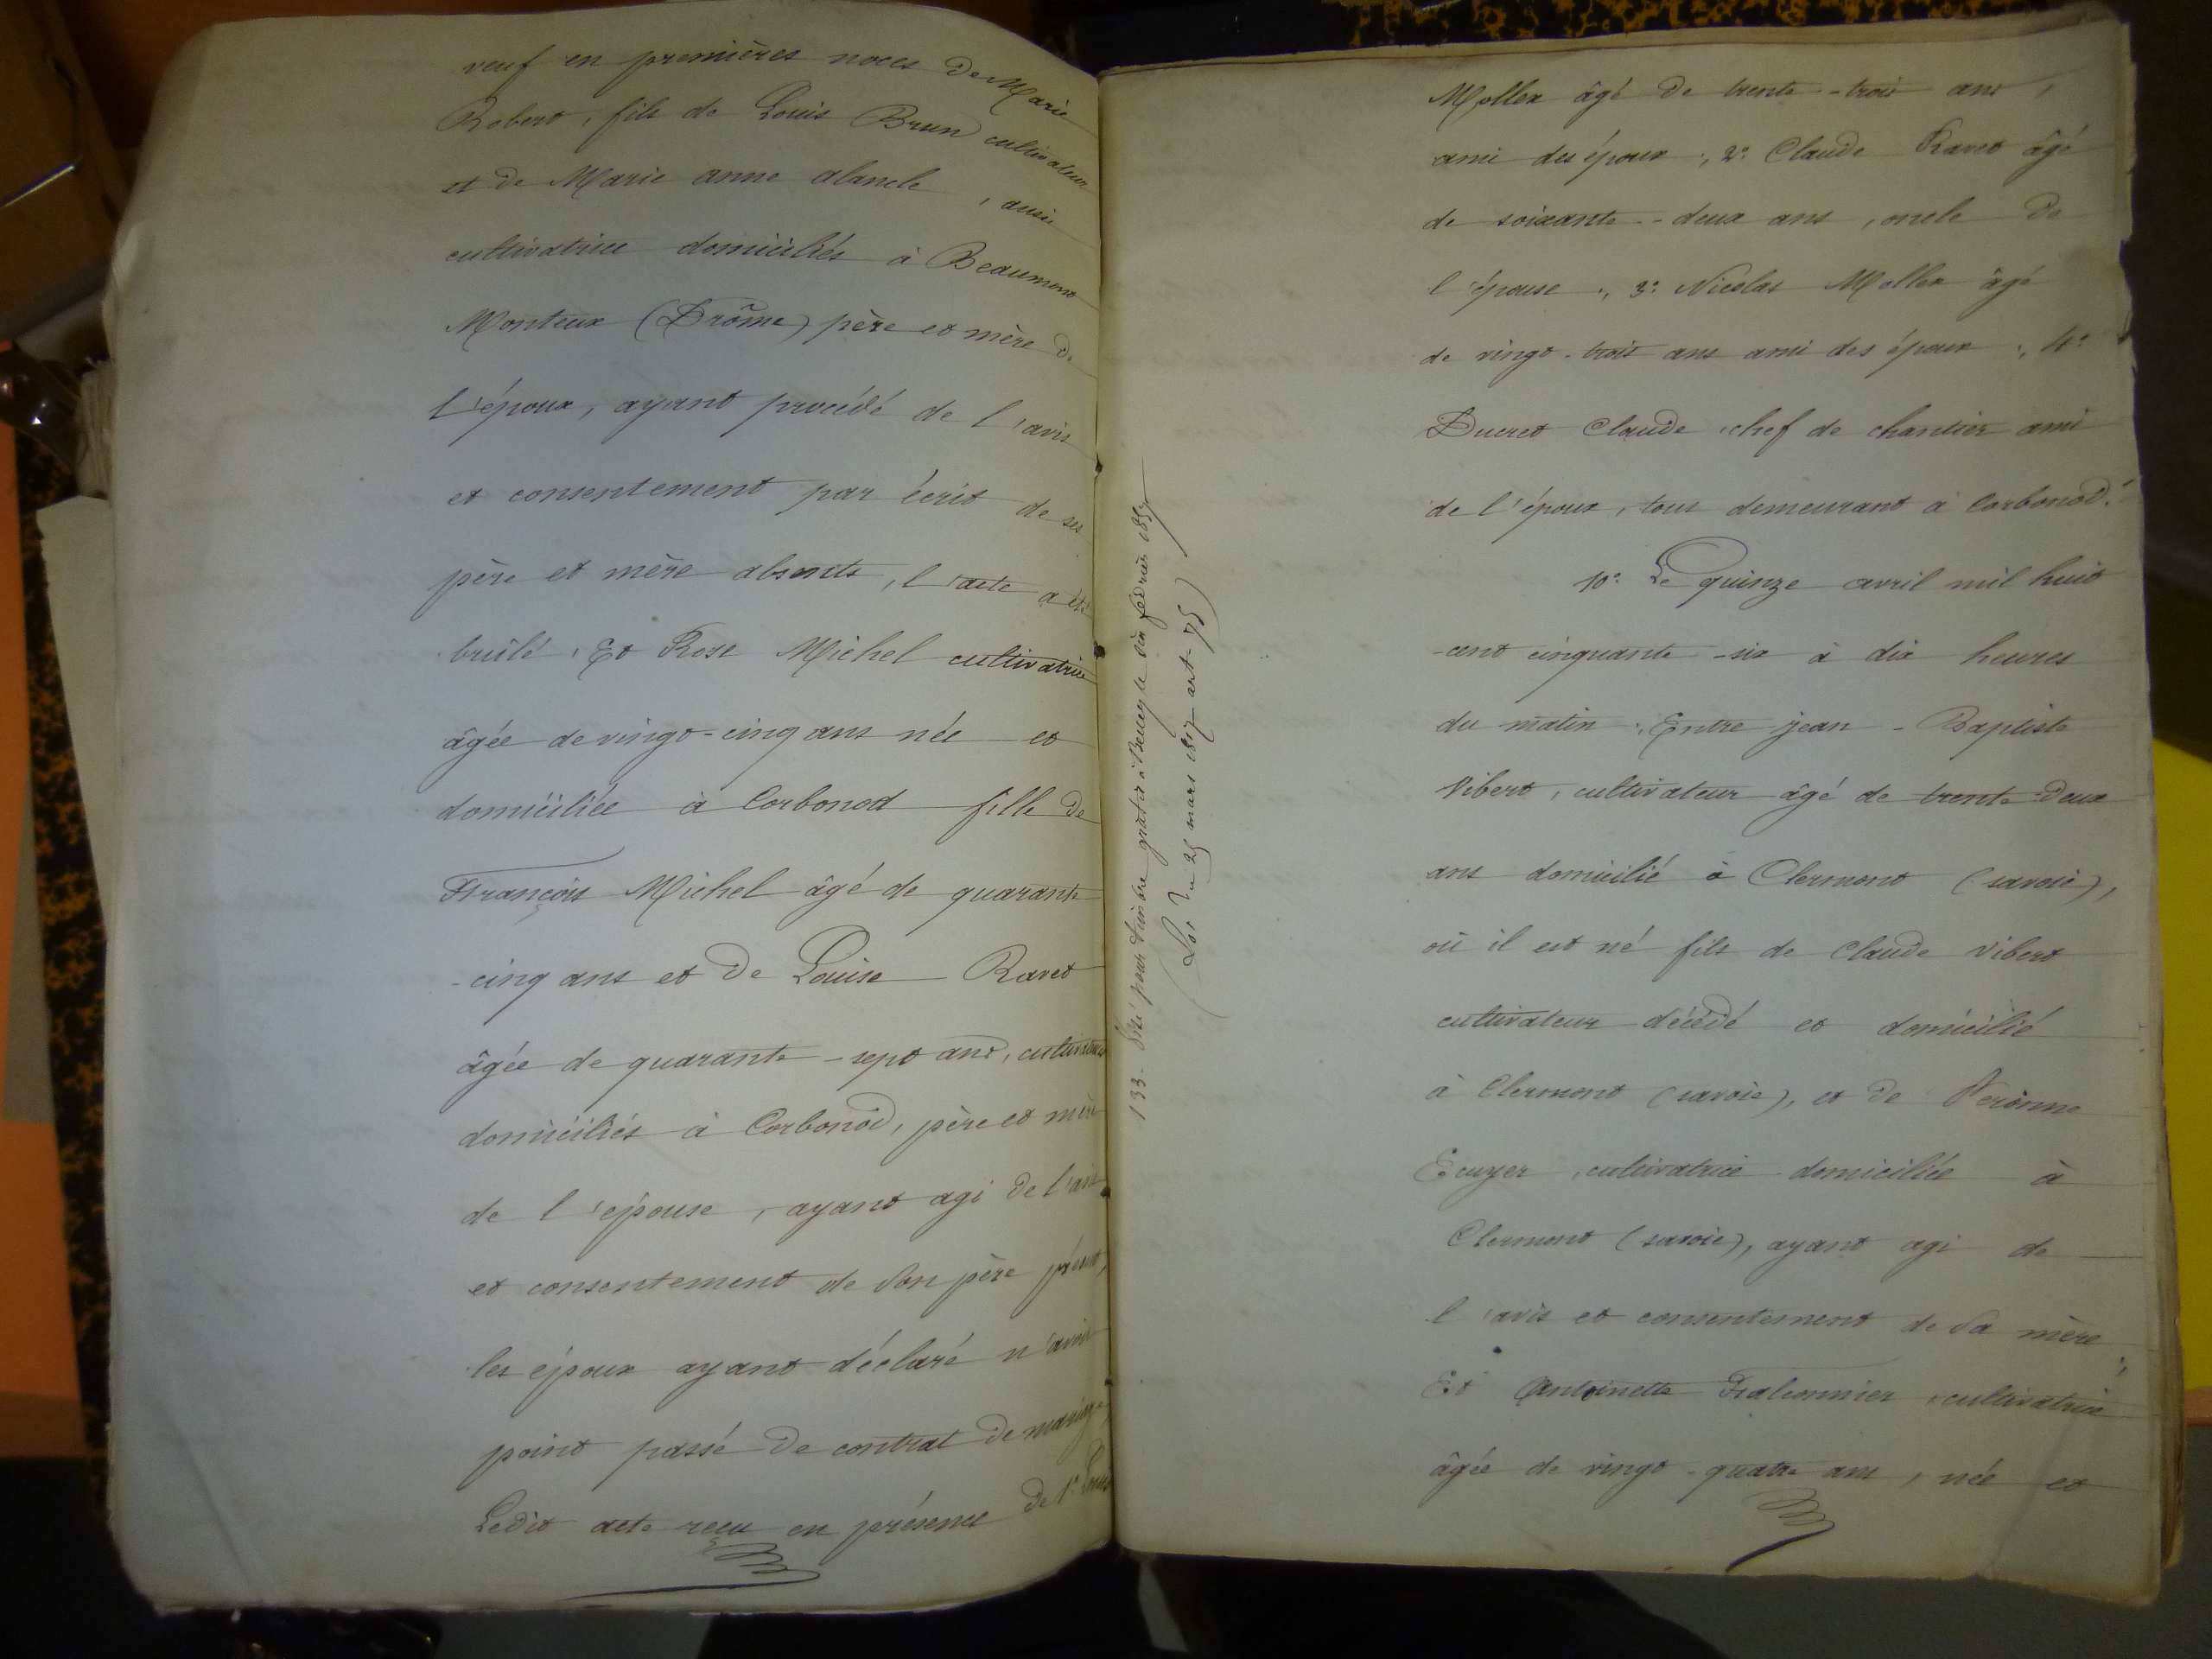 veuf en premières noces de Marie
Robert, fils de Louis Brun cultivateur
et de Marie anne alancle, aussi
cultivatrice domiciliés à Beaumont
Monteux (Drôme) père et mère de
l'époux, ayant procédé de l'avis
et consentement par écrit de ses
père et mère absents, l'acte a été
brûlé, Et Rose Michel cultivatrice
âgée de vingt-cinq ans née et
domiciliée à Corbonod fille de
François Michel âgé de quarante
-cinq ans et de Louise Ravet
âgée de quarante-sept ans, cultivateurs
domiciliés à Corbonod, père et mère
de l'épouse, ayant agi de l'avis
et consentement de son père présent,
les époux ayant déclaré n'avoir
point passé de contrat de mariage,
Ledit acte reçu en présence de 1° Louis
133. Visé pour timbre gratis à Belley le six février 1857
(Loi du 25 mars 1817 art. 75)
Mollex âgé de trente-trois ans,
ami des époux, 2° Claude Ravet âgé
de soixante-deux ans, oncle de
l'épouse, 3° Nicolas Mollex âgé
de vingt-trois ans ami des époux, 4°
Ducret Claude, chef de chantier ami
de l'époux, tous demeurant à Corbonod.
10° Le quinze avril mil huit
-cent cinquante-six à dix heures
du matin, Entre jean-Baptiste
Vibert, cultivateur âgé de trente-deux
ans domicilié à Clermont (savoie),
où il est né fils de Claude Vibert
cultivateur décédé et domicilié
à Clermont (savoie), et de
Ecuyer, cultivatrice domiciliée à
Clermont (savoie), ayant agi de
l'avis et consentement de sa mère,
Et Antoinette Falconnier, cultivatrice
âgée de vingt-quatre ans, née et